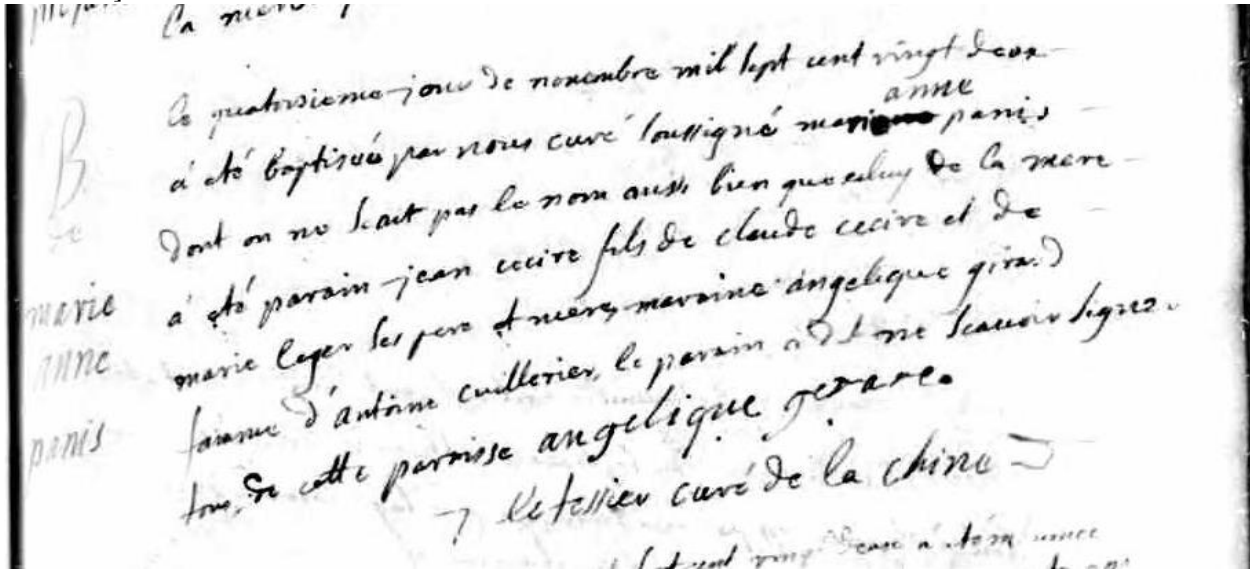 la mere
B
de
marie
anne
panis
le quatorsieme jour de novembre mil sept cent vingt deux
anne
a été baptisée par nous curé soussigné marie panis
dont on ne scait pas le nom aussi bien que celuy de la mere
a été parain jean cecire fils de claude cecire et de
marie leger ses pere et mere, maraine angelique girard
famme d'antoine cuillerier, le parain a dit ne scavoir signer
tous de cette paroisse angelique gerare.
Le tessier curé de la chine
sept cent vingt deux a été